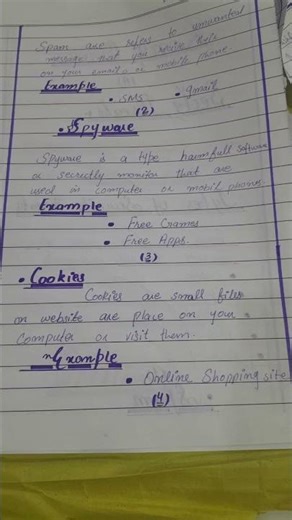 Spam are refers to unwanted
message that you
on your email or mobile phone
Example
• SMS • Gmail
(2)
• Spyware
Spyware is a type harmfull software
or secrectly monitor that are
used in computer or mobil phones
Example
• Free Games
• Free Apps.
(3)
• Cookies
Cookies are small files
on website are place on your
Computer or visit them.
Example
• Online Shopping site
(4)